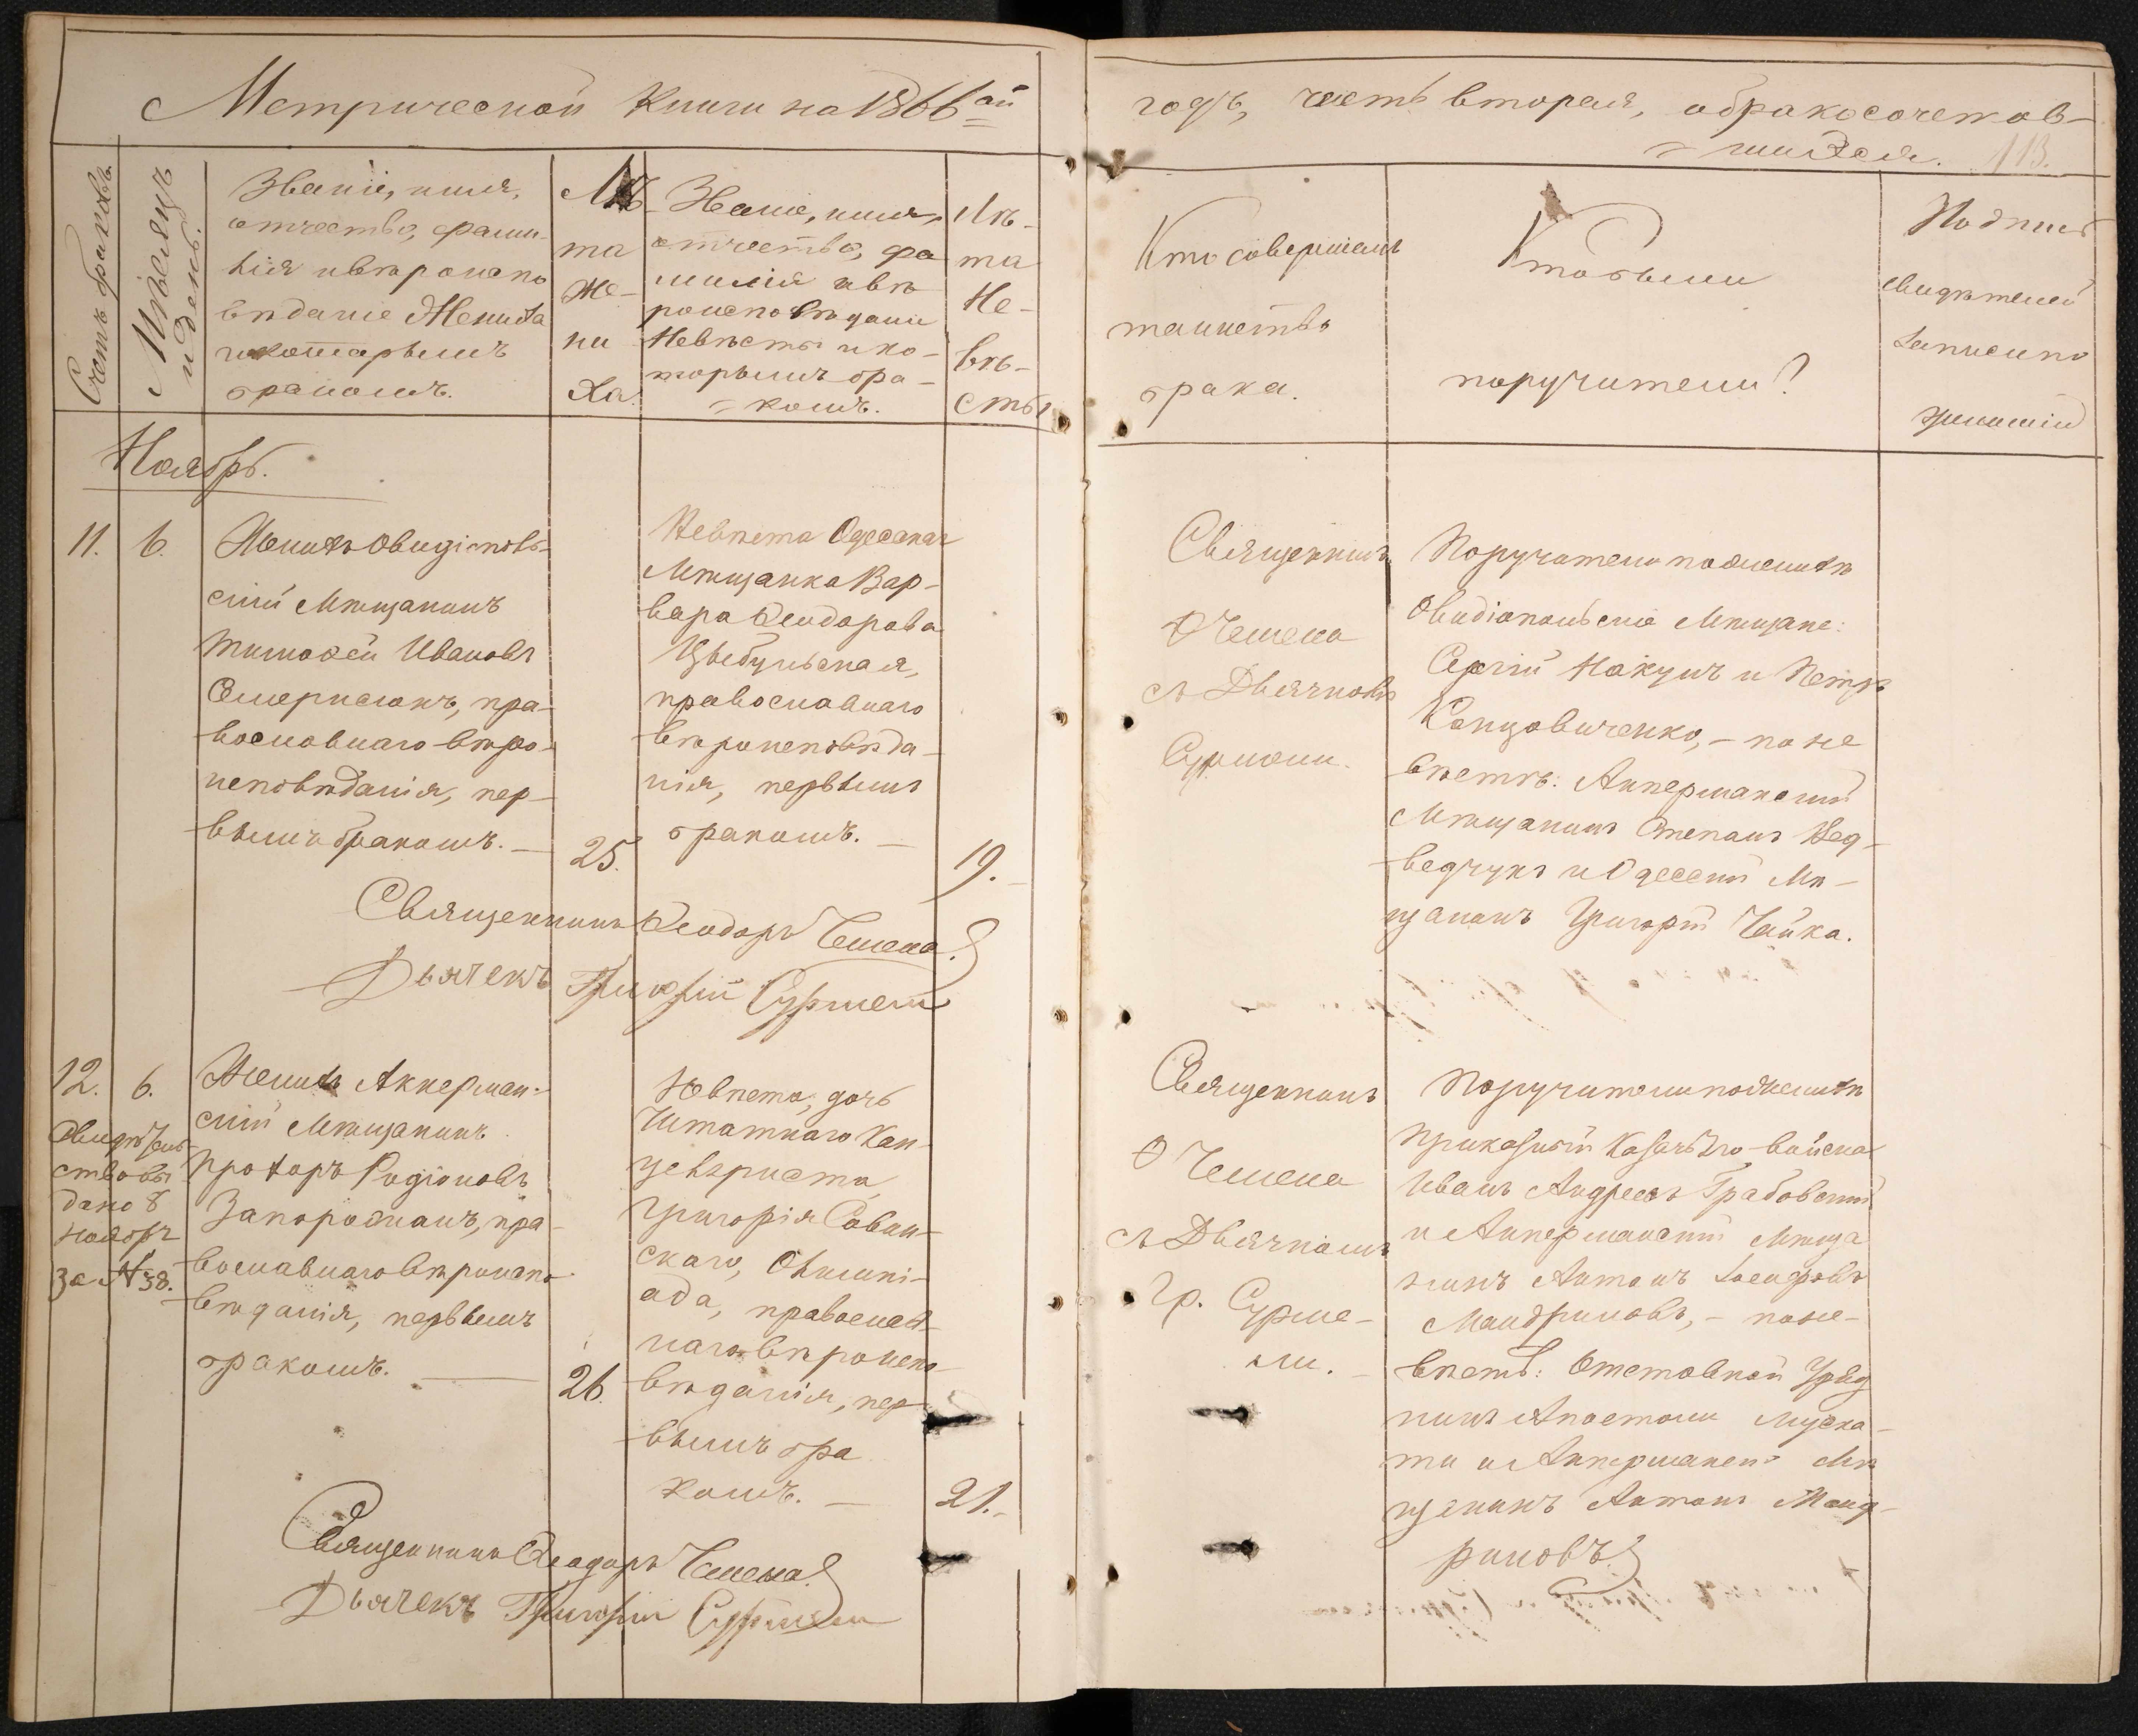 Метрической Книги на 1866ой
годъ, часть вторая, обракосочетав-
шихся. 113.
Счетъ браковъ
Мѣсяцъ и день.
Званіе, имя,
отчество, фами-
лія и вѣроиспо
вѣданіе Жениха
и которымъ
бракомъ.
Лѣ-
та
Же-
ни
ха.
Званіе, имя,
отчество, фа
милія и вѣ
роисповѣданіе
Невѣсты и ко-
торымъ бра-
комъ.
Лѣ-
та
Не-
вѣ-
сты
Кто совершалъ
таинство
брака.
Кто были
поручители?
Подпись
свидѣтелей
записи по
желанію
Ноябрь.
11.
6.
Женихъ Овидіополь-
скій Мѣщанинъ
Тимофей Ивановъ
пра-
вославнаго вѣро-
исповѣданія, пер-
вымъ бракомъ. —
25.
Невѣста Одесская
Мѣщанка Вар-
вара Ѳеодорова
Цыбульская,
православнаго
вѣроисповѣда-
нія, первымъ
бракомъ. —
19.
Священникъ
Ѳ Чемена
съ Дьячкомъ
Сурмеш.
Поручители по женихѣ
Овидіопольскіе Мѣщане:
Сергій Накулъ и Петръ
Концовиченко, – по не
вѣстѣ: Аккерманскій
Мѣщанинъ Степанъ Мед-
ведчукъ и Одесскій Мѣ-
щанинъ Григорій Чайка.
Священникъ Ѳеодоръ Чемена.
Дьячекъ Григорій Сурмеш
12.
6.
Свидѣтель-
ство вы
дано 8
ноября
за № 38.
Женихъ Аккерман-
скій Мѣщанинъ
Прохоръ Родіоновъ
Запорожанъ, пра-
вославнаго вѣроиспо-
вѣданія, первымъ
бракомъ. —
26.
Невѣста, дочь
Штатнаго Кан-
целяриста
Григорія Савин-
скаго, Олимпі-
ада, православ-
наго вѣроиспо-
вѣданія, пер-
вымъ бра
комъ. —
21.
Священникъ
Ѳ Чемена
съ Дьячкомъ
Гр. Сурме-
ли.
Поручители по женихѣ
Приказный Казачьяго войска
Иванъ Андреевъ Грабовскій
и Аккерманскій Мѣща
нинъ Антонъ Іосифовъ
Мандриковъ, – по не-
вѣстѣ: Отставной Уряд
никъ Апостолъ Муска-
ти и Аккерманскій Мѣ
щанинъ Антонъ Манд-
риковъ.
Священникъ Ѳеодоръ Чемена.
Дьячекъ Григорій Сурмели